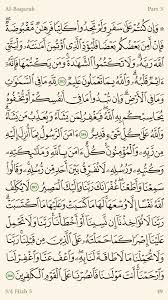 Al-Baqarah Part 3
۞ وَإِن كُنتُمْ عَلَىٰ سَفَرٍ وَلَمْ تَجِدُوا۟ كَاتِبًا فَرِهَـٰنٌ مَّقْبُوضَةٌ ۖ
فَإِنْ أَمِنَ بَعْضُكُم بَعْضًا فَلْيُؤَدِّ ٱلَّذِى ٱؤْتُمِنَ أَمَـٰنَتَهُۥ وَلْيَتَّقِ
ٱللَّهَ رَبَّهُۥ ۗ وَلَا تَكْتُمُوا۟ ٱلشَّهَـٰدَةَ ۚ وَمَن يَكْتُمْهَا فَإِنَّهُۥٓ
ءَاثِمٌ قَلْبُهُۥ ۗ وَٱللَّهُ بِمَا تَعْمَلُونَ عَلِيمٌ ٢٨٣ لِّلَّهِ مَا فِى ٱلسَّمَـٰوَٰتِ
وَمَا فِى ٱلْأَرْضِ ۗ وَإِن تُبْدُوا۟ مَا فِىٓ أَنفُسِكُمْ أَوْ تُخْفُوهُ
يُحَاسِبْكُم بِهِ ٱللَّهُ ۖ فَيَغْفِرُ لِمَن يَشَآءُ وَيُعَذِّبُ مَن يَشَآءُ ۗ
وَٱللَّهُ عَلَىٰ كُلِّ شَىْءٍ قَدِيرٌ ٢٨٤ ءَامَنَ ٱلرَّسُولُ بِمَآ أُنزِلَ إِلَيْهِ
مِن رَّبِّهِۦ وَٱلْمُؤْمِنُونَ ۚ كُلٌّ ءَامَنَ بِٱللَّهِ وَمَلَـٰٓئِكَتِهِۦ وَكُتُبِهِۦ
وَرُسُلِهِۦ لَا نُفَرِّقُ بَيْنَ أَحَدٍ مِّن رُّسُلِهِۦ ۚ وَقَالُوا۟ سَمِعْنَا
وَأَطَعْنَا ۖ غُفْرَانَكَ رَبَّنَا وَإِلَيْكَ ٱلْمَصِيرُ ٢٨٥ لَا يُكَلِّفُ
ٱللَّهُ نَفْسًا إِلَّا وُسْعَهَا ۚ لَهَا مَا كَسَبَتْ وَعَلَيْهَا مَا ٱكْتَسَبَتْ ۗ
رَبَّنَا لَا تُؤَاخِذْنَآ إِن نَّسِينَآ أَوْ أَخْطَأْنَا ۚ رَبَّنَا وَلَا تَحْمِلْ
عَلَيْنَآ إِصْرًا كَمَا حَمَلْتَهُۥ عَلَى ٱلَّذِينَ مِن قَبْلِنَا ۚ رَبَّنَا وَلَا تُحَمِّلْنَا
مَا لَا طَاقَةَ لَنَا بِهِۦ ۖ وَٱعْفُ عَنَّا وَٱغْفِرْ لَنَا وَٱرْحَمْنَآ ۚ
أَنتَ مَوْلَىٰنَا فَٱنصُرْنَا عَلَى ٱلْقَوْمِ ٱلْكَـٰفِرِينَ ٢٨٦
3/4 Hizb 5 49